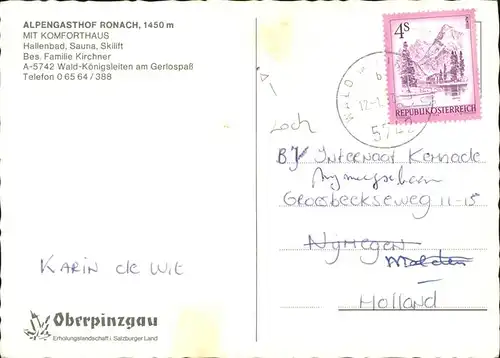 ALPENGASTHOF RONACH, 1450 m
MIT KOMFORTHAUS
Hallenbad, Sauna, Skilift
Bes. Familie Kirchner
A-5742 Wald-Königsleiten am Gerlospaß
Telefon 0 65 64 / 388
4S
REPUBLIK ÖSTERREICH
WALD
5742
BY INTERNAAT
GROESBEEKSEWEG 11-15
NIJMEGEN
Malden
HOLLAND
KARIN de Wit
Oberpinzgau
Erholungslandschaft i. Salzburger Land